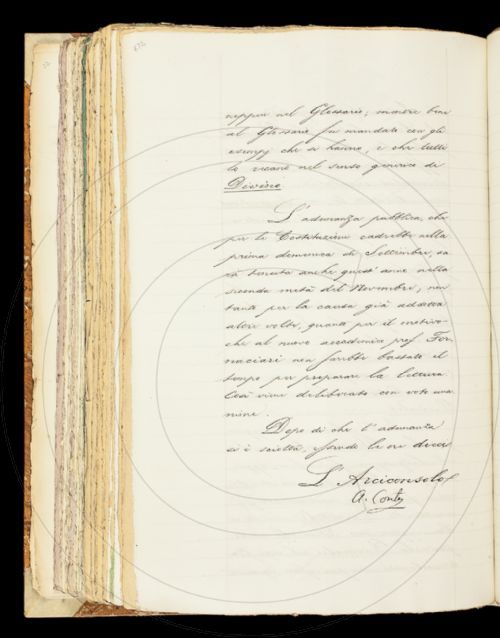 neppur nel Glossario; mentre bene
al Glossario fu mandato con gli
esempj che si hanno, e che tutti
lo recano nel senso generico di
Divino.
L'adunanza pubblica, che
per le Costituzioni cadrebbe nella
prima domenica di Settembre, sa
rà tenuta anche quest'anno nella
seconda metà del Novembre, non
tanto per la causa già addotta
altre volte, quanto per il motivo
che al nuovo accademico prof. For
naciari non sarebbe bastato il
tempo per preparare la lettura.
Così viene deliberato con voto una
nime.
Dopo di che l'adunanza
si è sciolta, essendo le ore dieci
L'Arciconsolo
A. Conti